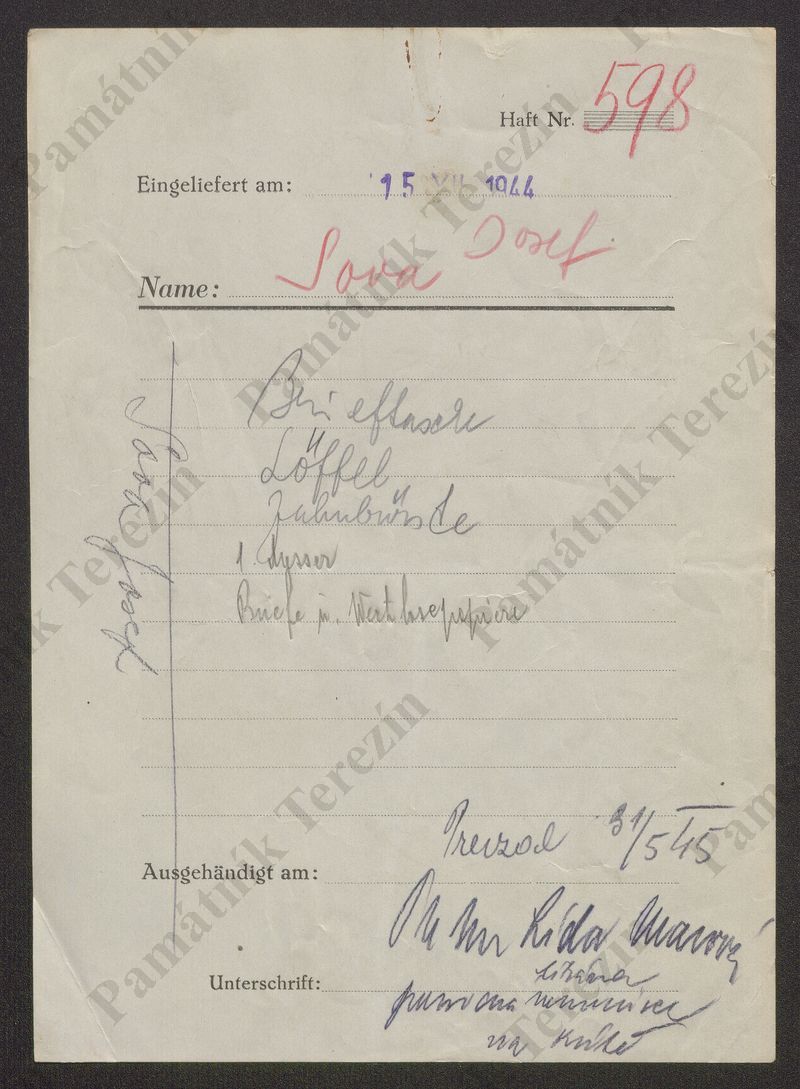 Haft Nr. 598
Eingeliefert am: 15 XII. 1944
Name: Sova Josef
Brieftasche
Löffel
Zahnbürste
1 Mysser
Briefe u. Wertlosepapiere
Sova Josef
Prevzal 31/5 45
Ausgehändigt am:
MUDr Lída
Unterschrift:
na
Památník Terezín